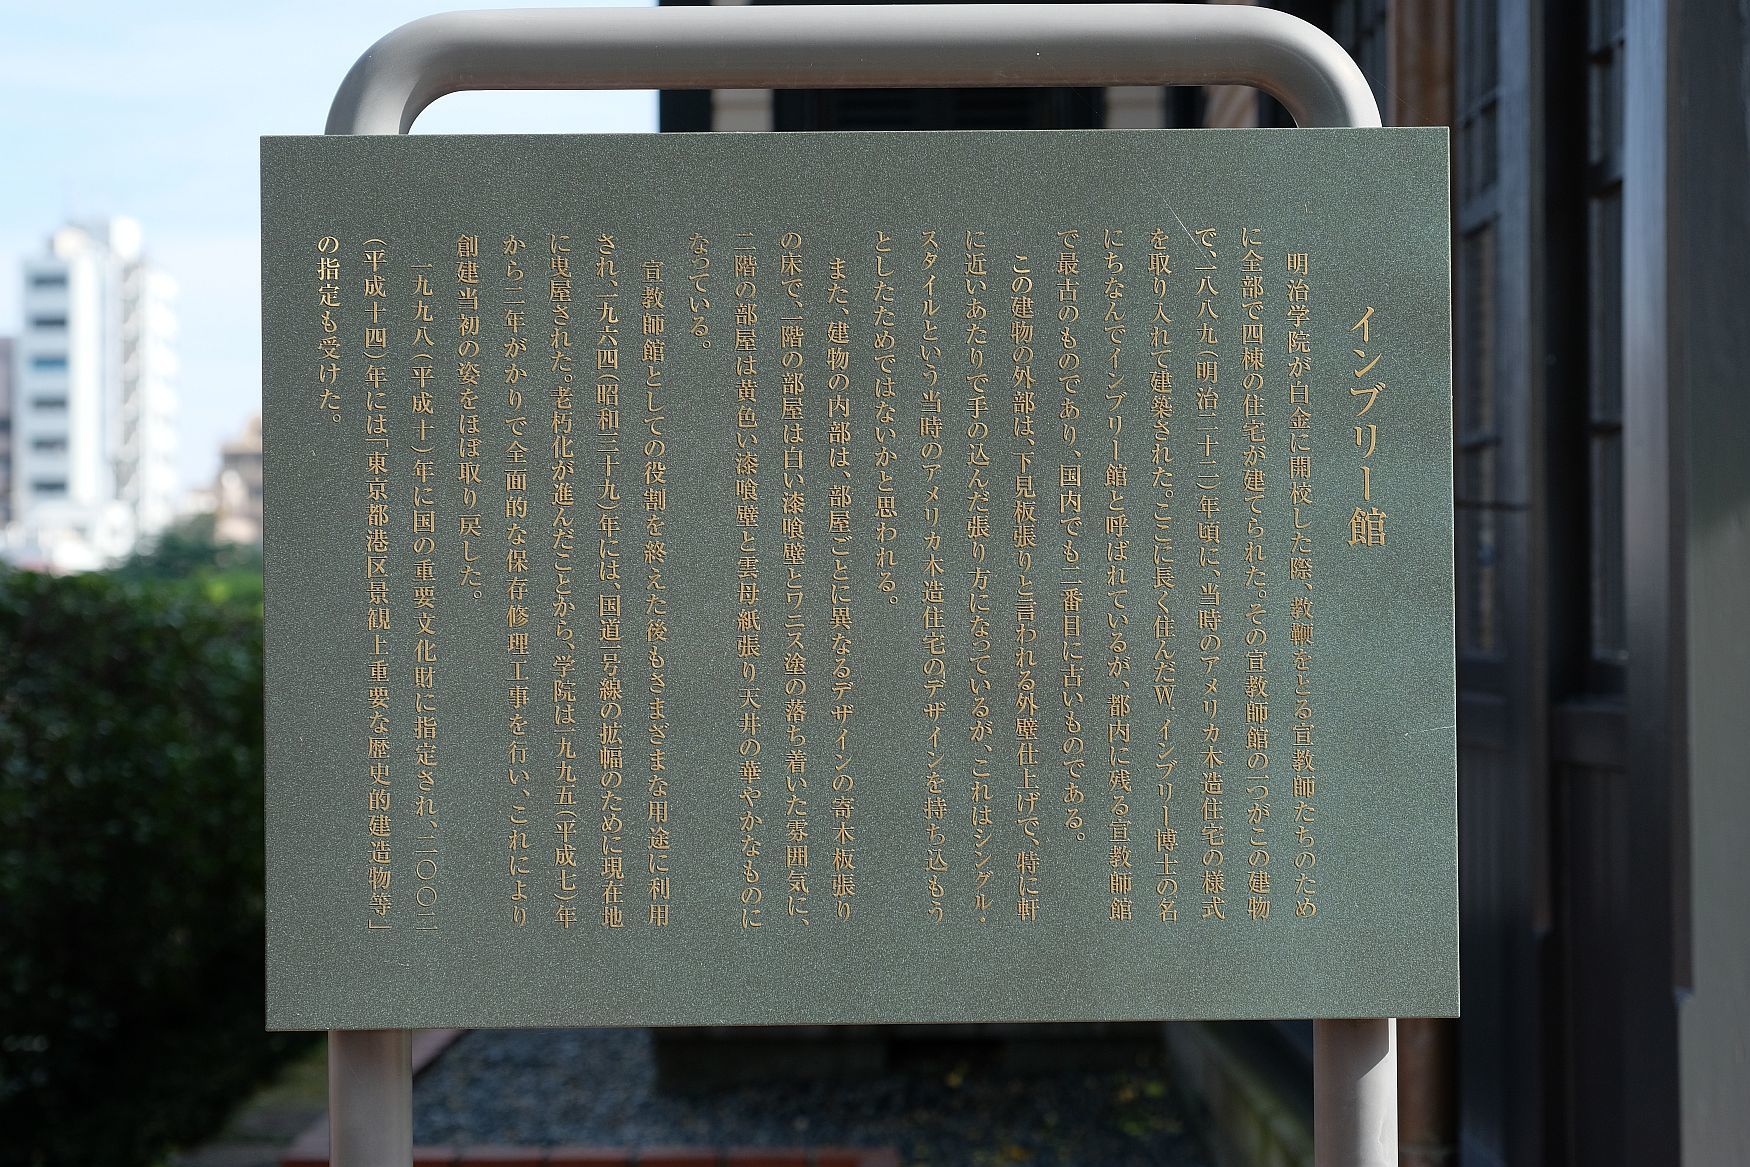 インブリー館
明治学院が白金に開校した際、教鞭をとる宣教師たちのため
に全部で四棟の住宅が建てられた。その宣教師館の一つがこの建物
で、一八八九(明治二十二)年頃に、当時のアメリカ木造住宅の様式
を取り入れて建築された。ここに長く住んだW.インブリー博士の名
にちなんでインブリー館と呼ばれているが、都内に残る宣教師館
で最古のものであり、国内でも二番目に古いものである。
この建物の外部は、下見板張りと言われる外壁仕上げで、特に軒
に近いあたりで手の込んだ張り方になっているが、これはシングル・
スタイルという当時のアメリカ木造住宅のデザインを持ち込もう
としたためではないかと思われる。
また、建物の内部は、部屋ごとに異なるデザインの寄木板張り
の床で、一階の部屋は白い漆喰壁とワニス塗の落ち着いた雰囲気に、
二階の部屋は黄色い漆喰壁と雲母紙張り天井の華やかなものに
なっている。
宣教師館としての役割を終えた後もさまざまな用途に利用
され、一九六四(昭和三十九)年には、国道一号線の拡幅のために現在地
に曳屋された。老朽化が進んだことから、学院は一九九五(平成七)年
から二年がかりで全面的な保存修理工事を行い、これにより
創建当初の姿をほぼ取り戻した。
一九九八(平成十)年に国の重要文化財に指定され、二〇〇二
(平成十四)年には「東京都港区景観上重要な歴史的建造物等」
の指定も受けた。